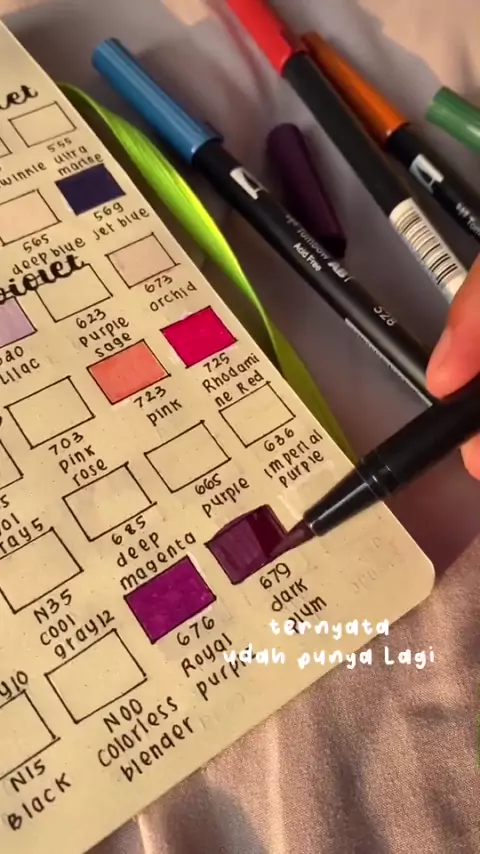 winnie
555
ultra
marine
565
deep blue
569
jet blue
violet
Lilac
623
purple
sage
673
orchid
703
pink
rose
723
pink
725
Rhodami
ne Red
685
deep
magenta
665
purple
636
imperial
purple
N35
cool
gray12
676
Royal
purple
679
dark
plum
N15
Black
N00
colorless
blender
Tombow
Acid Free
528
ternyata
udah punya Lagi